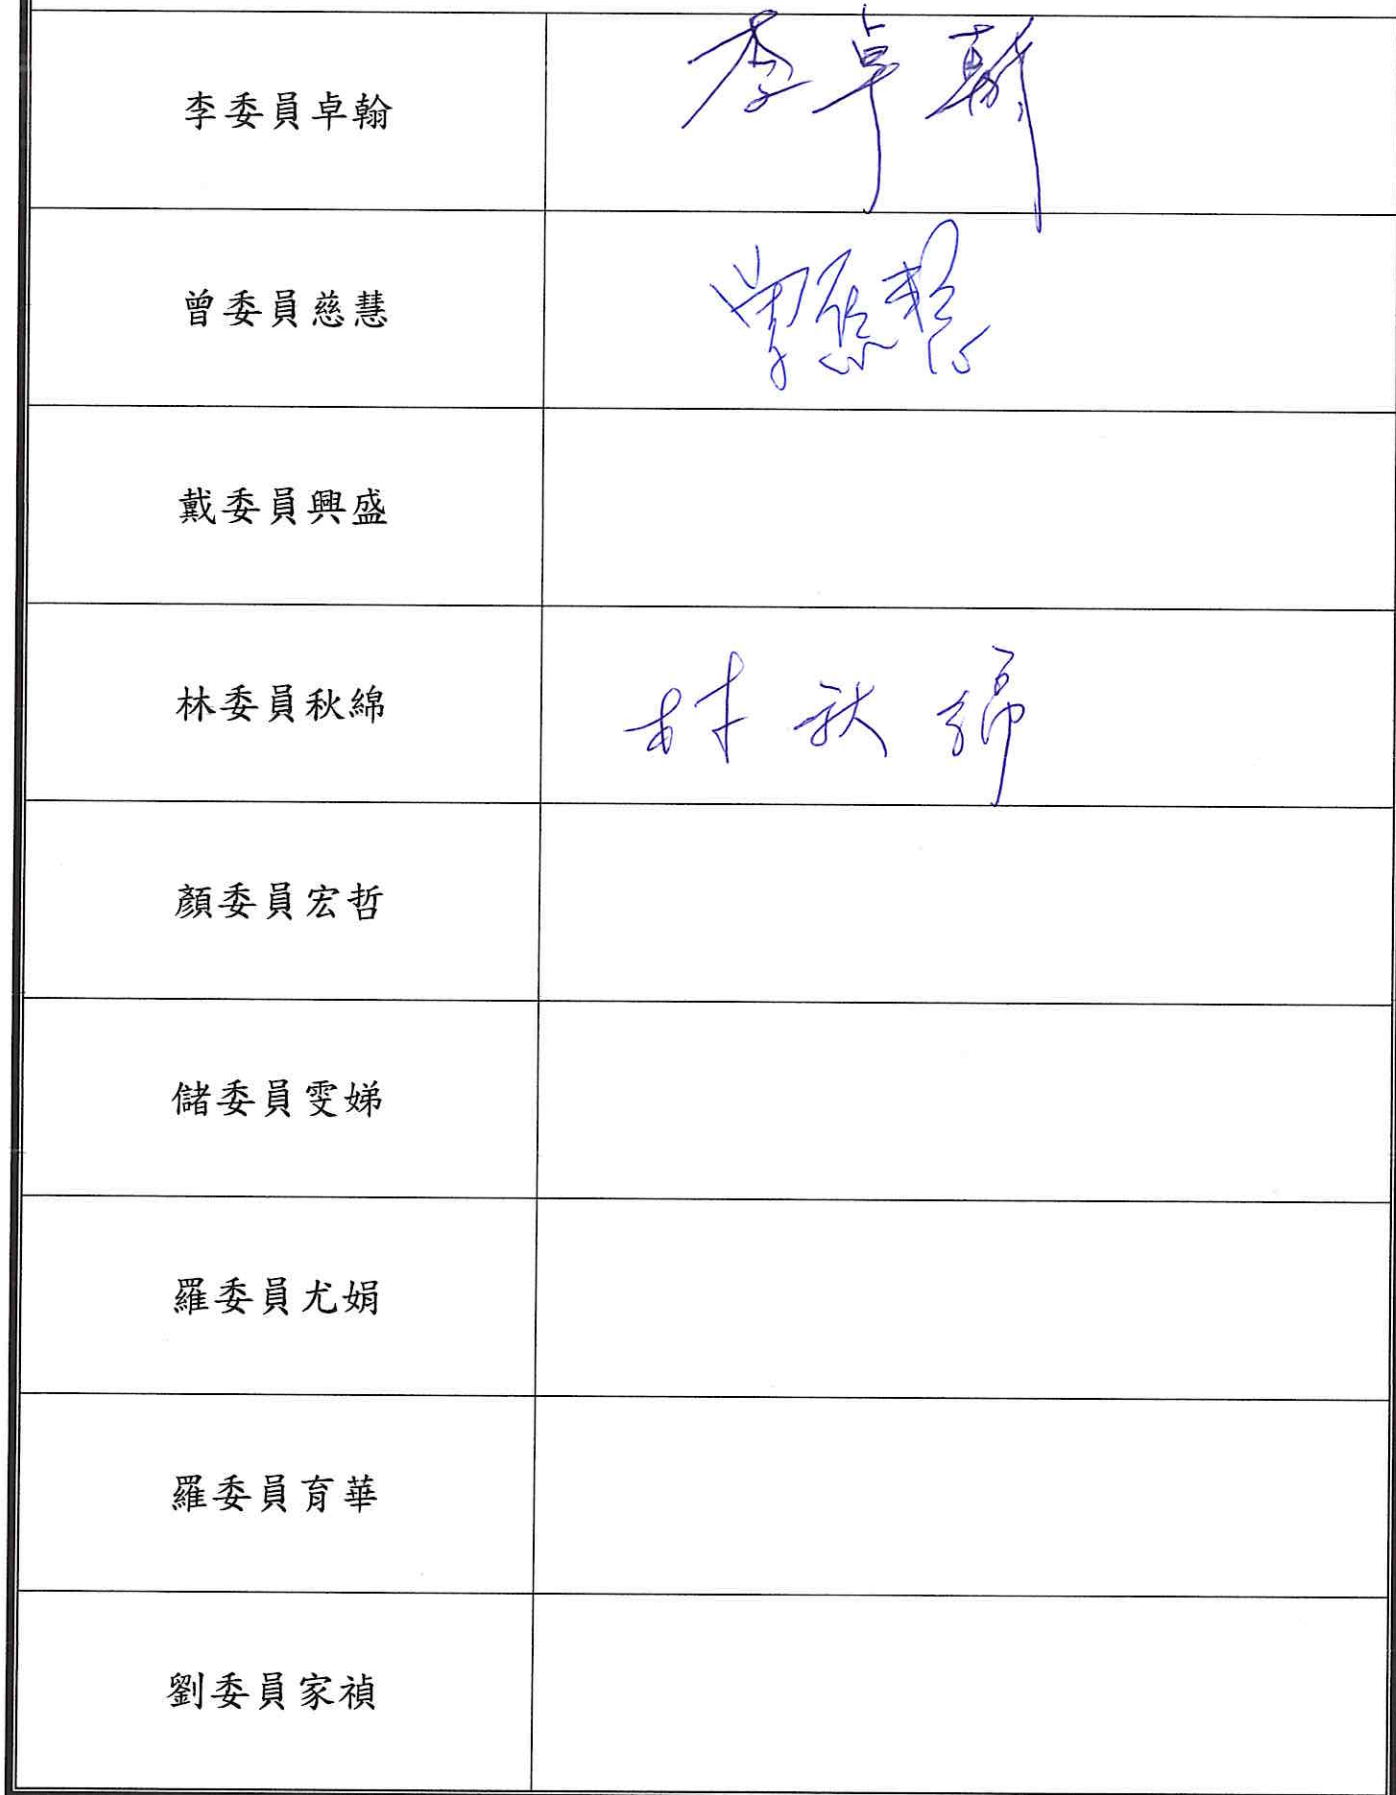 李委員卓翰 李卓翰
曾委員慈慧 曾慈慧
戴委員興盛
林委員秋綿 林秋綿
顏委員宏哲
儲委員雯娣
羅委員尤娟
羅委員育華
劉委員家禎